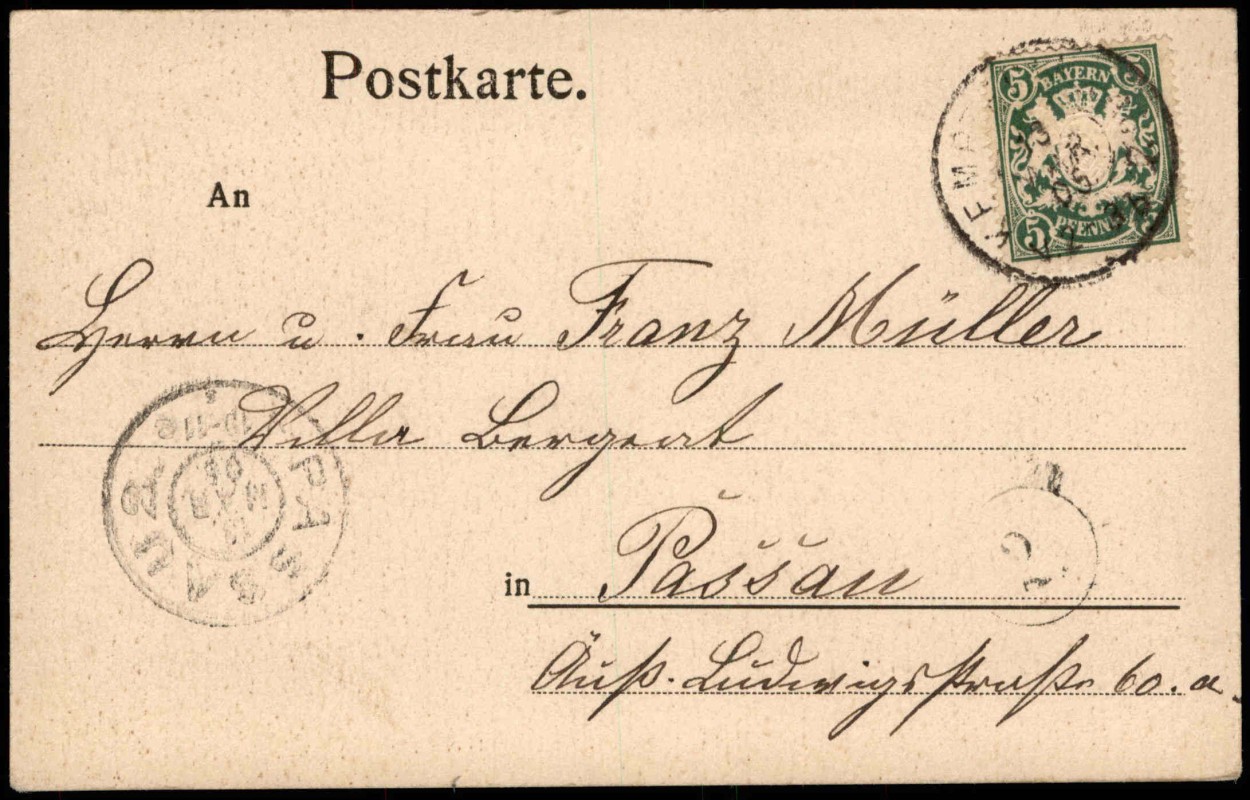 Postkarte.
5 BAYERN 5
5 PFENNIG
An
Herrn u. Frau Franz Müller
Villa Bergeat
PASSAU 2
MAR
in Passau
Äuß. Ludwigsstraße 60. a.